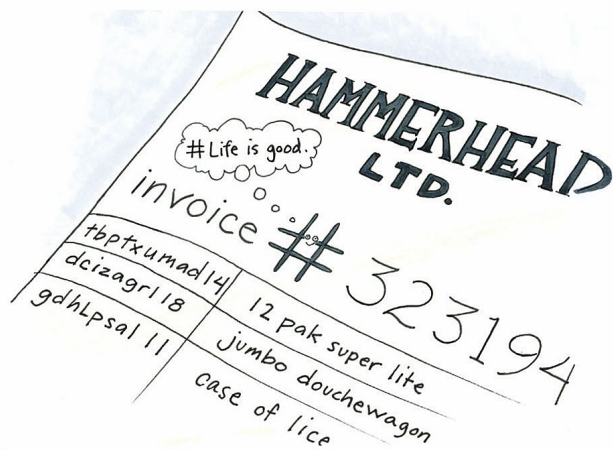 HAMMERHEAD
LTD.
#Life is good.
invoice # 323194
tbptxumad14 12 pak super lite
dcizagr118 jumbo douchewagon
gdhLpsa111 case of lice